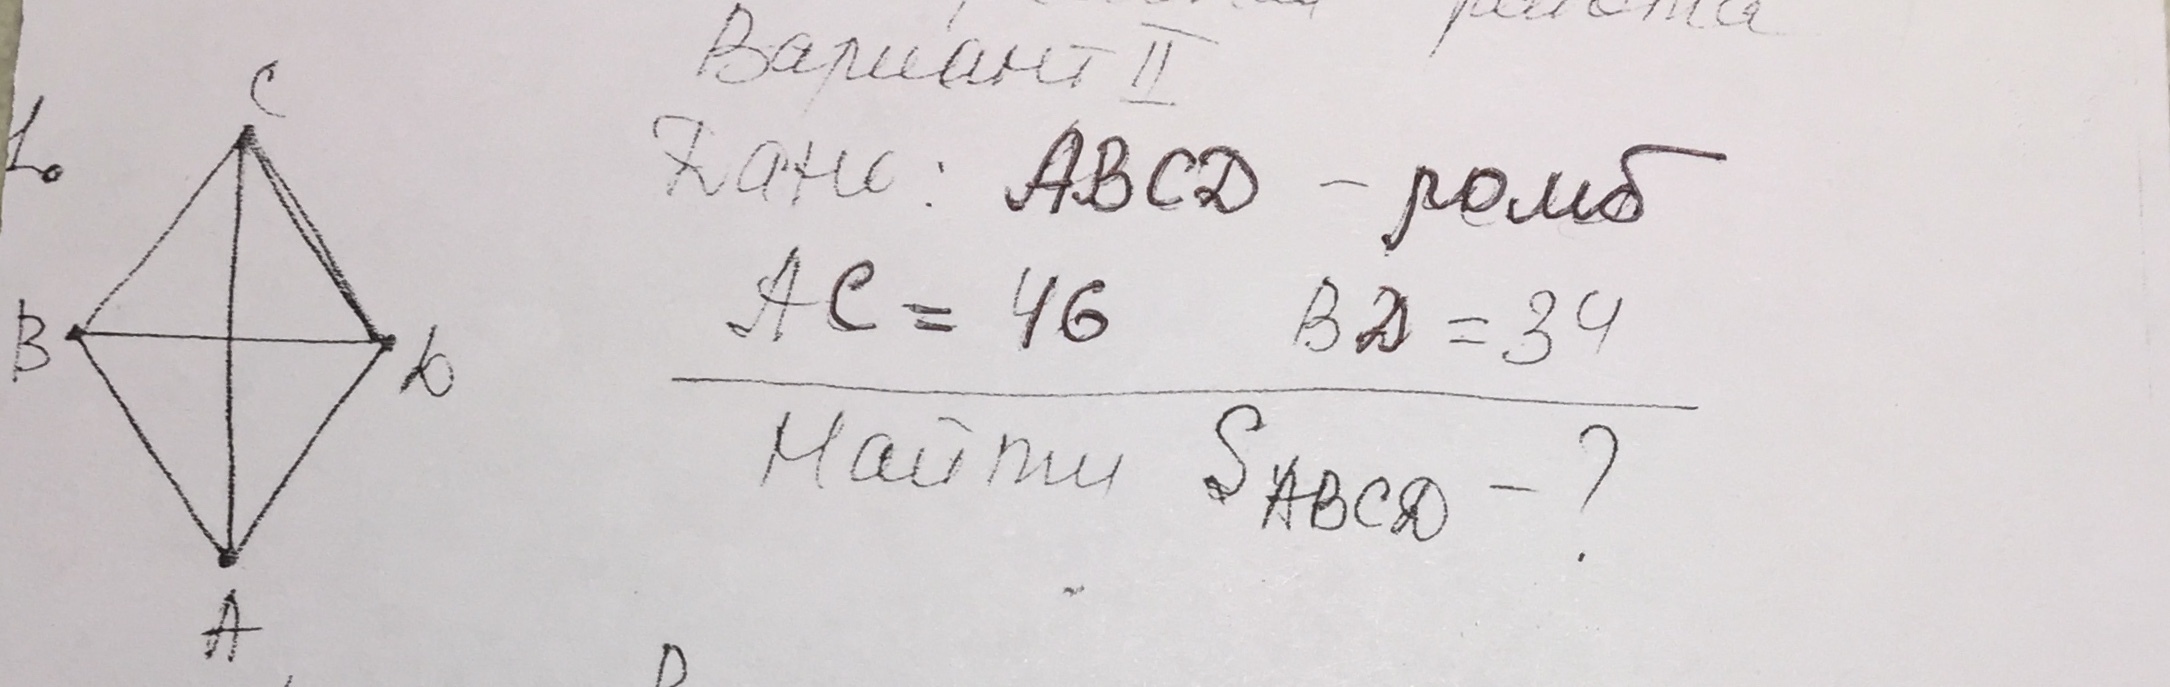 работа
Вариант II
1.
Дано: ABCD - ромб
AC = 46 BD = 34
Найти S ABCD - ?
C
B
D
A